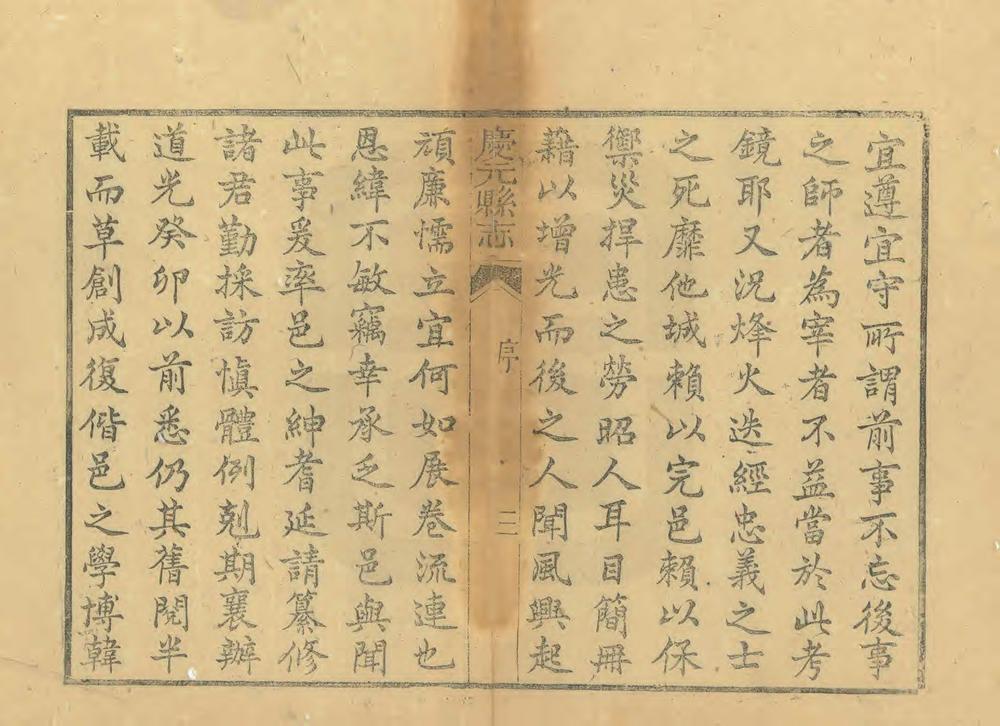 宜遵宜守所謂前事不忘後事
之師者為宰者不益當於此考
鏡耶又况烽火迭經忠義之士
之死靡他城賴以完邑賴以保
禦災捍患之勞昭人耳目簡冊
藉以增光而後之人聞風興起
慶元縣志
序
二
頑廉懦立宜何如展卷流連也
恩緯不敏竊幸承乏斯邑與聞
此事爰率邑之紳耆延請纂修
諸君勤採訪慎體例剋期襄辦
道光癸卯以前悉仍其舊閱半
載而草創成復偕邑之學博韓